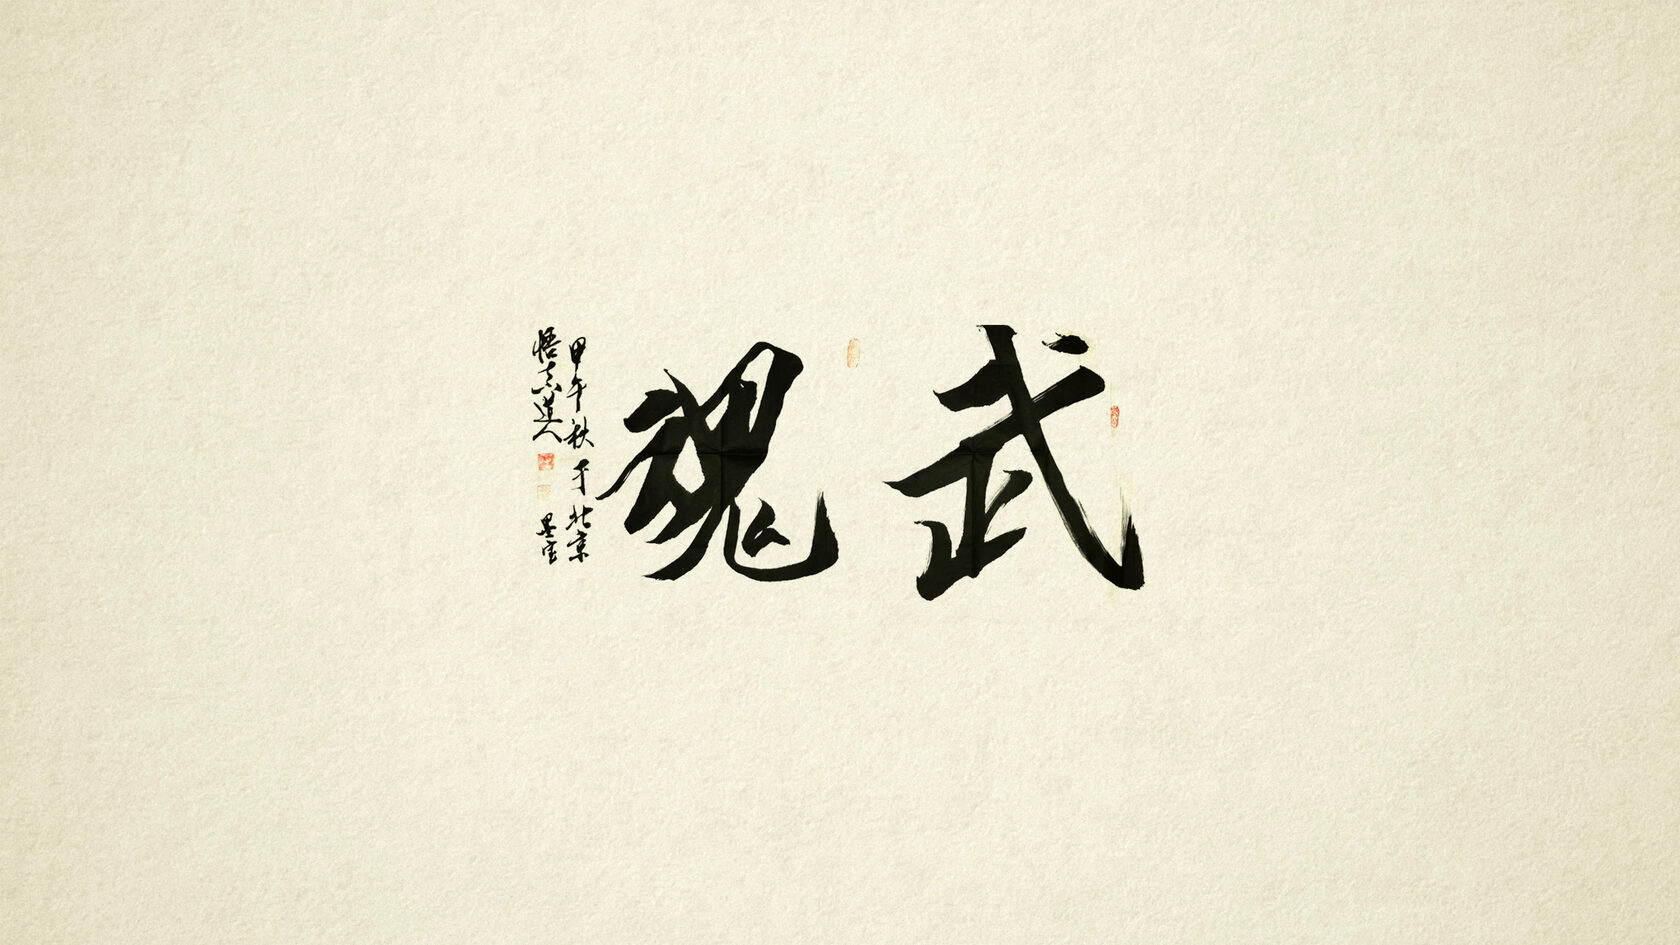 武魂
甲午秋于北京
悟志道人
墨宝